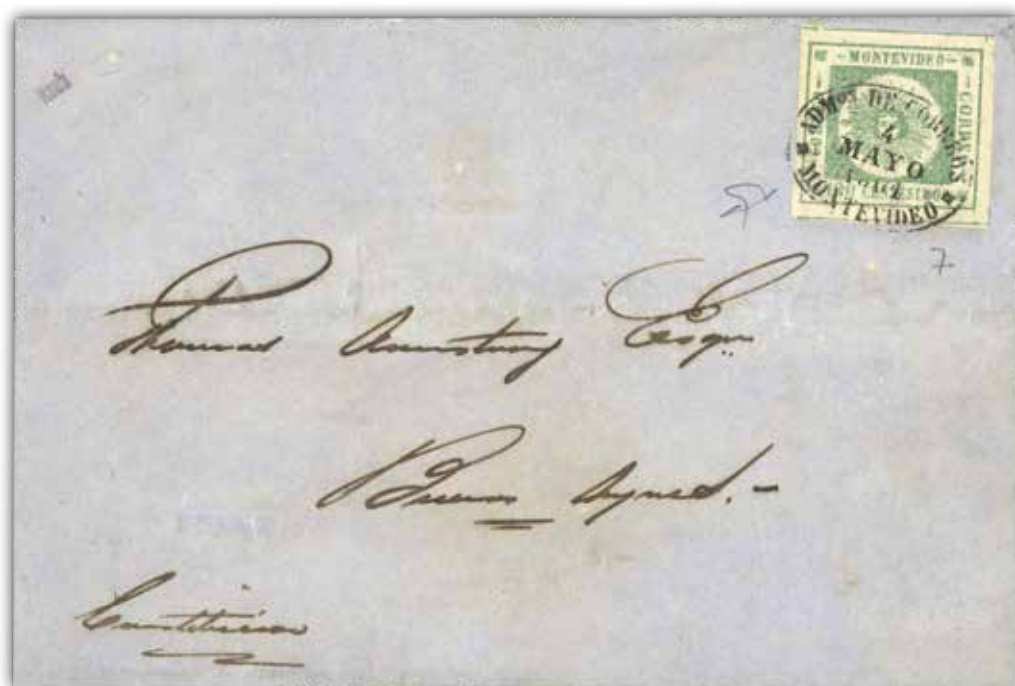 MONTEVIDEO
CORREOS
ADMON DE CORREOS
4
MAYO
MONTEVIDEO
7
Thomas Armstrong Esqre
Buenos Ayres.-
Constitucion